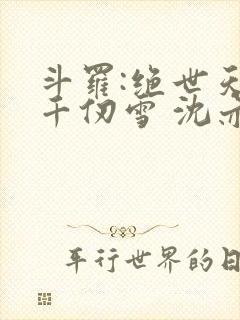 斗羅:绝世天
千仞雪 沈
平行世界的日